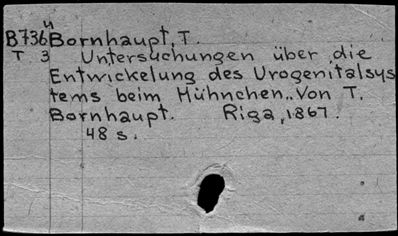 4
B736 Bornhaupt, T.
T 3 Untersuchungen über die
Entwickelung des Urogenitalsys
tems beim Hühnchen.. Von T.
Bornhaupt. Riga, 1867.
48 s.